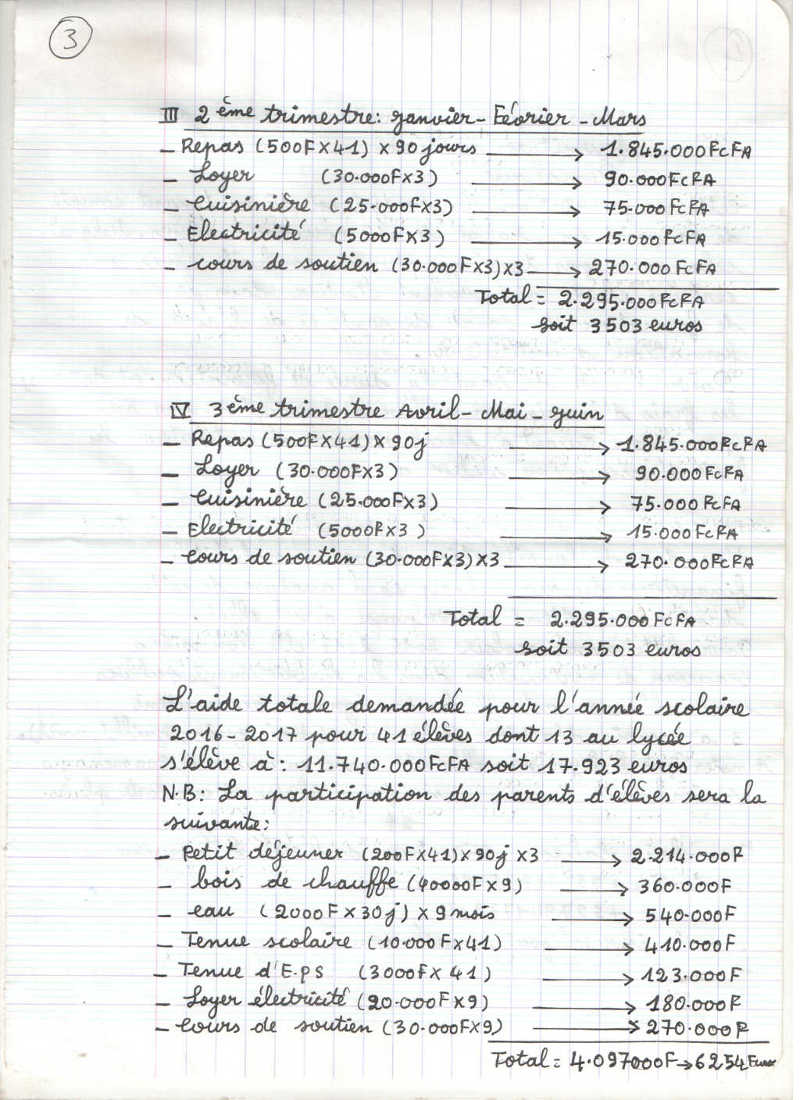 3
III 2ème trimestre: Janvier - Février - Mars
- Repas (500F X 41) X 90 jours → 1.845.000 FCFA
- Loyer (30.000F X 3) → 90.000 FCFA
- Cuisinière (25.000F X 3) → 75.000 FCFA
- Electricité (5000F X 3) → 15.000 FCFA
- cours de soutien (30.000F X 3) X 3 → 270.000 FCFA
Total = 2.295.000 FCFA
soit 3503 euros
IV 3ème trimestre Avril - Mai - Juin
- Repas (500F X 41) X 90j → 1.845.000 FCFA
- Loyer (30.000F X 3) → 90.000 FCFA
- Cuisinière (25.000F X 3) → 75.000 FCFA
- Electricité (5000F X 3) → 15.000 FCFA
- Cours de soutien (30.000F X 3) X 3 → 270.000 FCFA
Total = 2.295.000 FCFA
soit 3503 euros
L'aide totale demandée pour l'année scolaire
2016-2017 pour 41 élèves dont 13 au lycée
s'élève à : 11.740.000 FCFA soit 17.923 euros
N.B: La participation des parents d'élèves sera la
suivante:
- Petit déjeuner (200F X 41) X 90j X 3 → 2.214.000F
- bois de chauffe (40000F X 9) → 360.000F
- eau (2000F X 30j) X 9 mois → 540.000F
- Tenue scolaire (10.000F X 41) → 410.000F
- Tenue d'E.PS (3000F X 41) → 123.000F
- Loyer électricité (20.000F X 9) → 180.000F
- Cours de soutien (30.000F X 9) → 270.000F
Total = 4.097000F → 6254 Euros